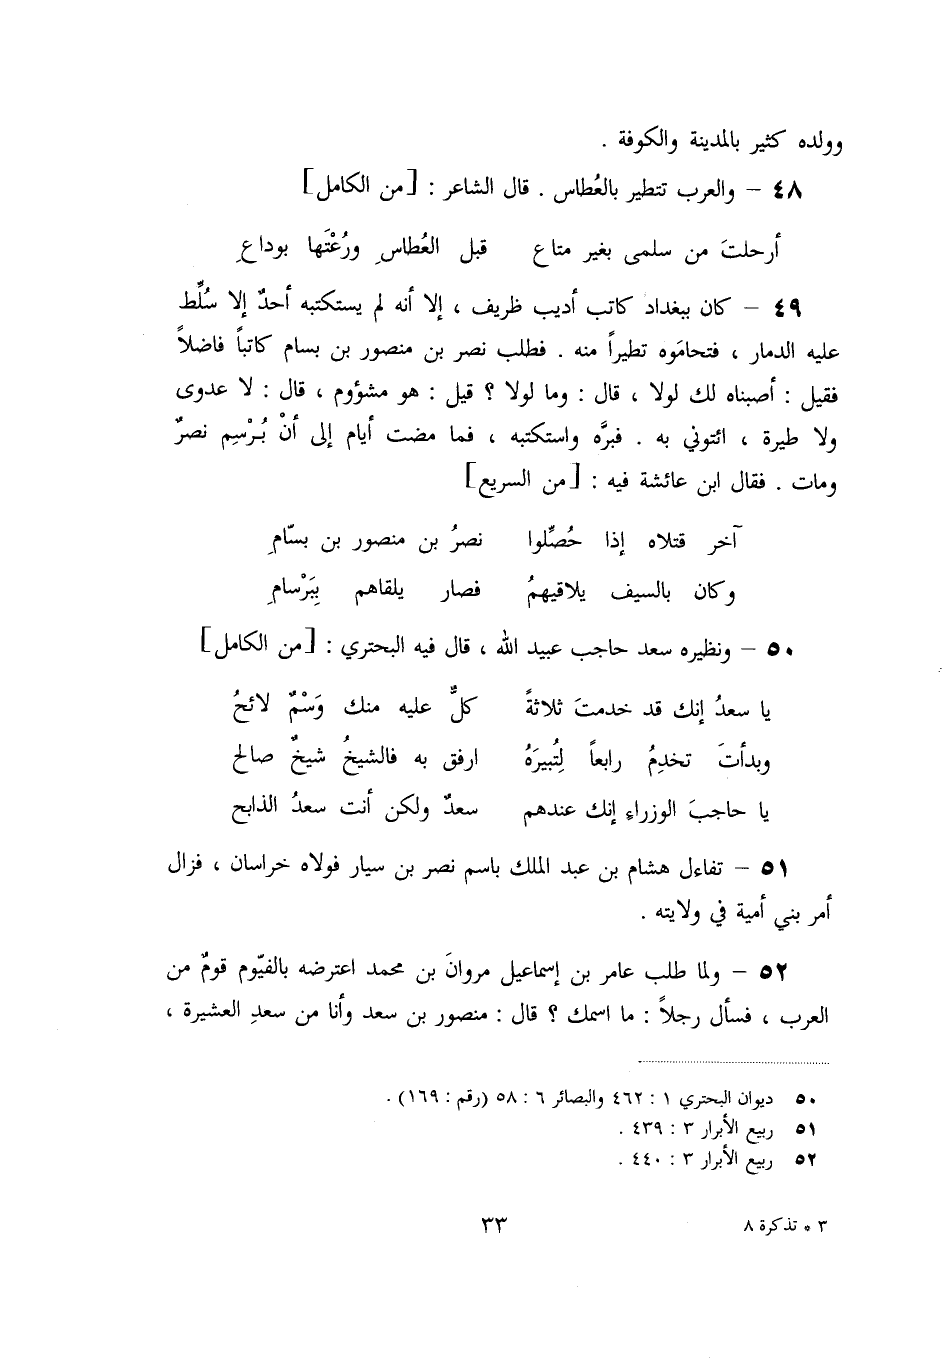 وولده كثير بالمدينة والكوفة .
٤٨ – والعرب تتطير بالعُطاس . قال الشاعر : [من الكامل]
أرحلتَ من سلمى بغير متاع قبل العُطاسِ ورُعْتَها بوداعِ
٤٩ – كان ببغداد كاتب أديب ظريف ، إلا أنه لم يستكتبه أحدٌ إلا سُلِّط
عليه الدمار ، فتحامَوه تطيراً منه . فطلب نصر بن منصور بن بسام كاتباً فاضلاً
فقيل : أصبناه لك لولا ، قال : وما لولا ؟ قيل : هو مشؤوم ، قال : لا عدوى
ولا طيرة ، ائتوني به . فبرَّه واستكتبه ، فما مضت أيام إلى أنْ بُرْسِم نصرٌ
ومات . فقال ابن عائشة فيه : [من السريع]
آخر قتلاه إذا حُصِّلوا نصرُ بن منصور بن بسّامِ
وكان بالسيف يلاقيهمُ فصار يلقاهم بِبَرْسامِ
٥٠ – ونظيره سعد حاجب عبيد الله ، قال فيه البحتري : [من الكامل]
يا سعدُ إنك قد خدمتَ ثلاثةً كلٌّ عليه منك وَسْمٌ لائحُ
وبدأتَ تخدمُ رابعاً لِتُبيرَهُ ارفق به فالشيخُ شيخٌ صالح
يا حاجبَ الوزراءِ إنك عندهم سعدٌ ولكن أنت سعدُ الذابح
٥١ – تفاءل هشام بن عبد الملك باسم نصر بن سيار فولاه خراسان ، فزال
أمر بني أمية في ولايته .
٥٢ – ولما طلب عامر بن إسماعيل مروانَ بن محمد اعترضه بالفيّوم قومٌ من
العرب ، فسأل رجلاً : ما اسمك ؟ قال : منصور بن سعد وأنا من سعدِ العشيرة ،
٥٠ ديوان البحتري ١ : ٤٦٢ والبصائر ٦ : ٥٨ (رقم : ١٦٩) .
٥١ ربيع الأبرار ٣ : ٤٣٩ .
٥٢ ربيع الأبرار ٣ : ٤٤٠ .
٣ * تذكرة ٨ ٣٣